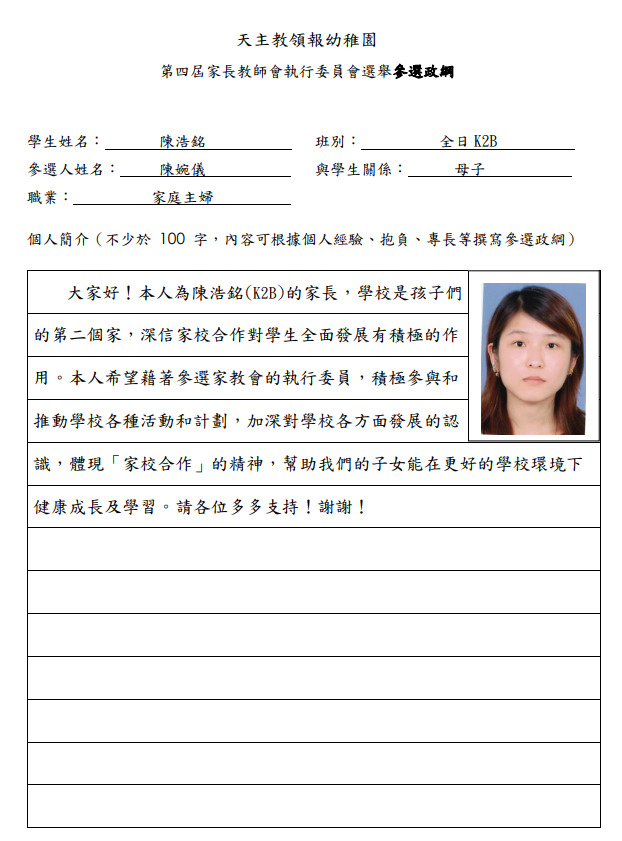 天主教領報幼稚園
第四屆家長教師會執行委員會選舉參選政綱
學生姓名：陳浩銘 班別：全日 K2B
參選人姓名：陳婉儀 與學生關係：母子
職業：家庭主婦
個人簡介（不少於 100 字，內容可根據個人經驗、抱負、專長等撰寫參選政綱）
大家好！本人為陳浩銘(K2B)的家長，學校是孩子們
的第二個家，深信家校合作對學生全面發展有積極的作
用。本人希望藉著參選家教會的執行委員，積極參與和
推動學校各種活動和計劃，加深對學校各方面發展的認
識，體現「家校合作」的精神，幫助我們的子女能在更好的學校環境下
健康成長及學習。請各位多多支持！謝謝！